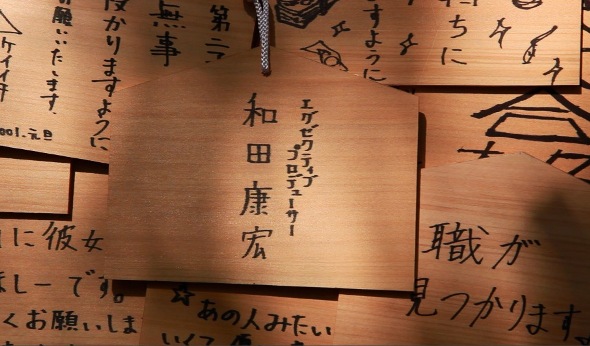 エグゼクティブ
プロデューサー
和田康宏
ちに
すように
第二
無事
受かりますように
お願いいたします。
ケイイチ
001.元旦
に彼女
ほしーです。
くお願いしま
☆あの人みたい
職が
見つかります